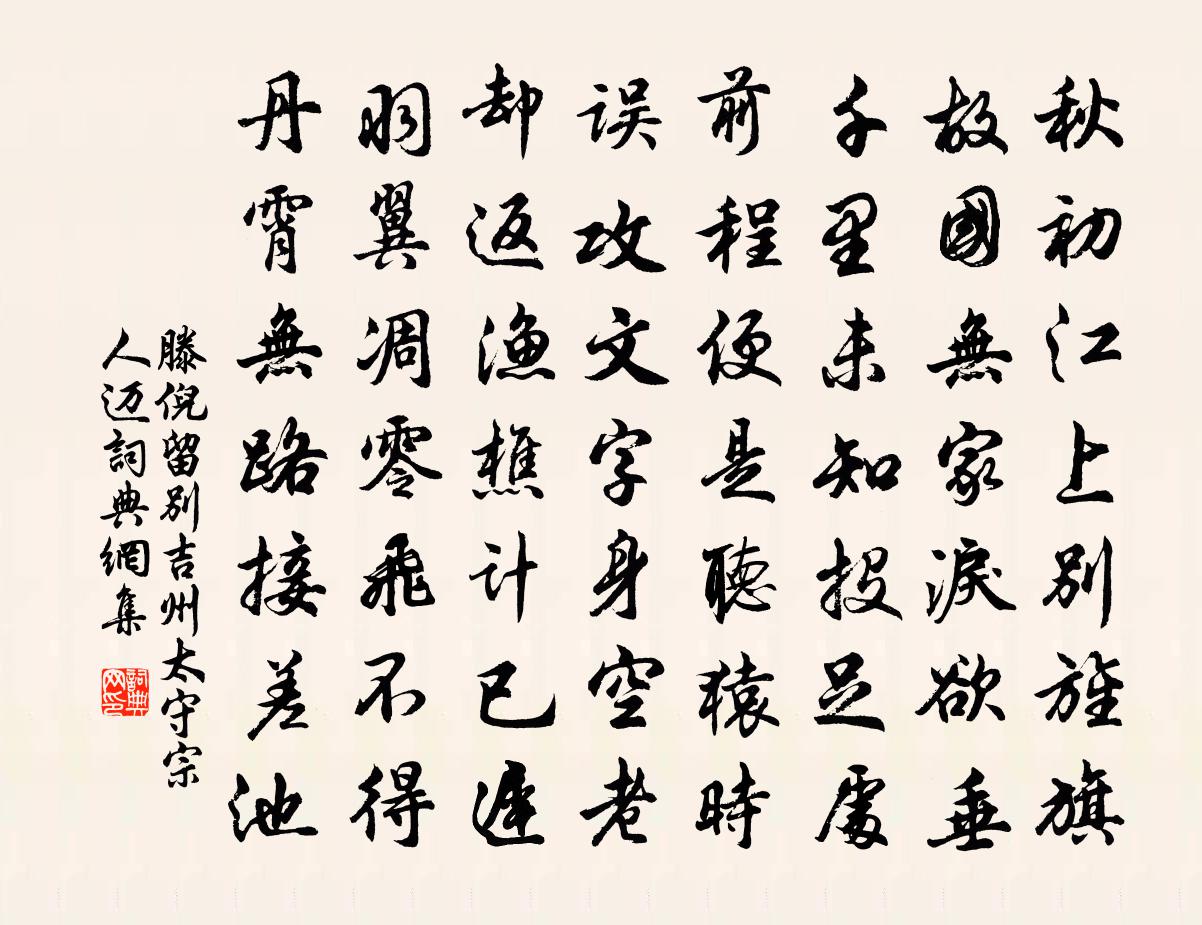 秋初江上別旌旗
故國無家淚欲垂
千里未知投足處
前程便是聽猿時
误攻文字身空老
却返漁樵計已遲
羽翼凋零飛不得
丹霄無路接差池
滕倪留別吉州太守宗
人迈詞典網集
詞典網印